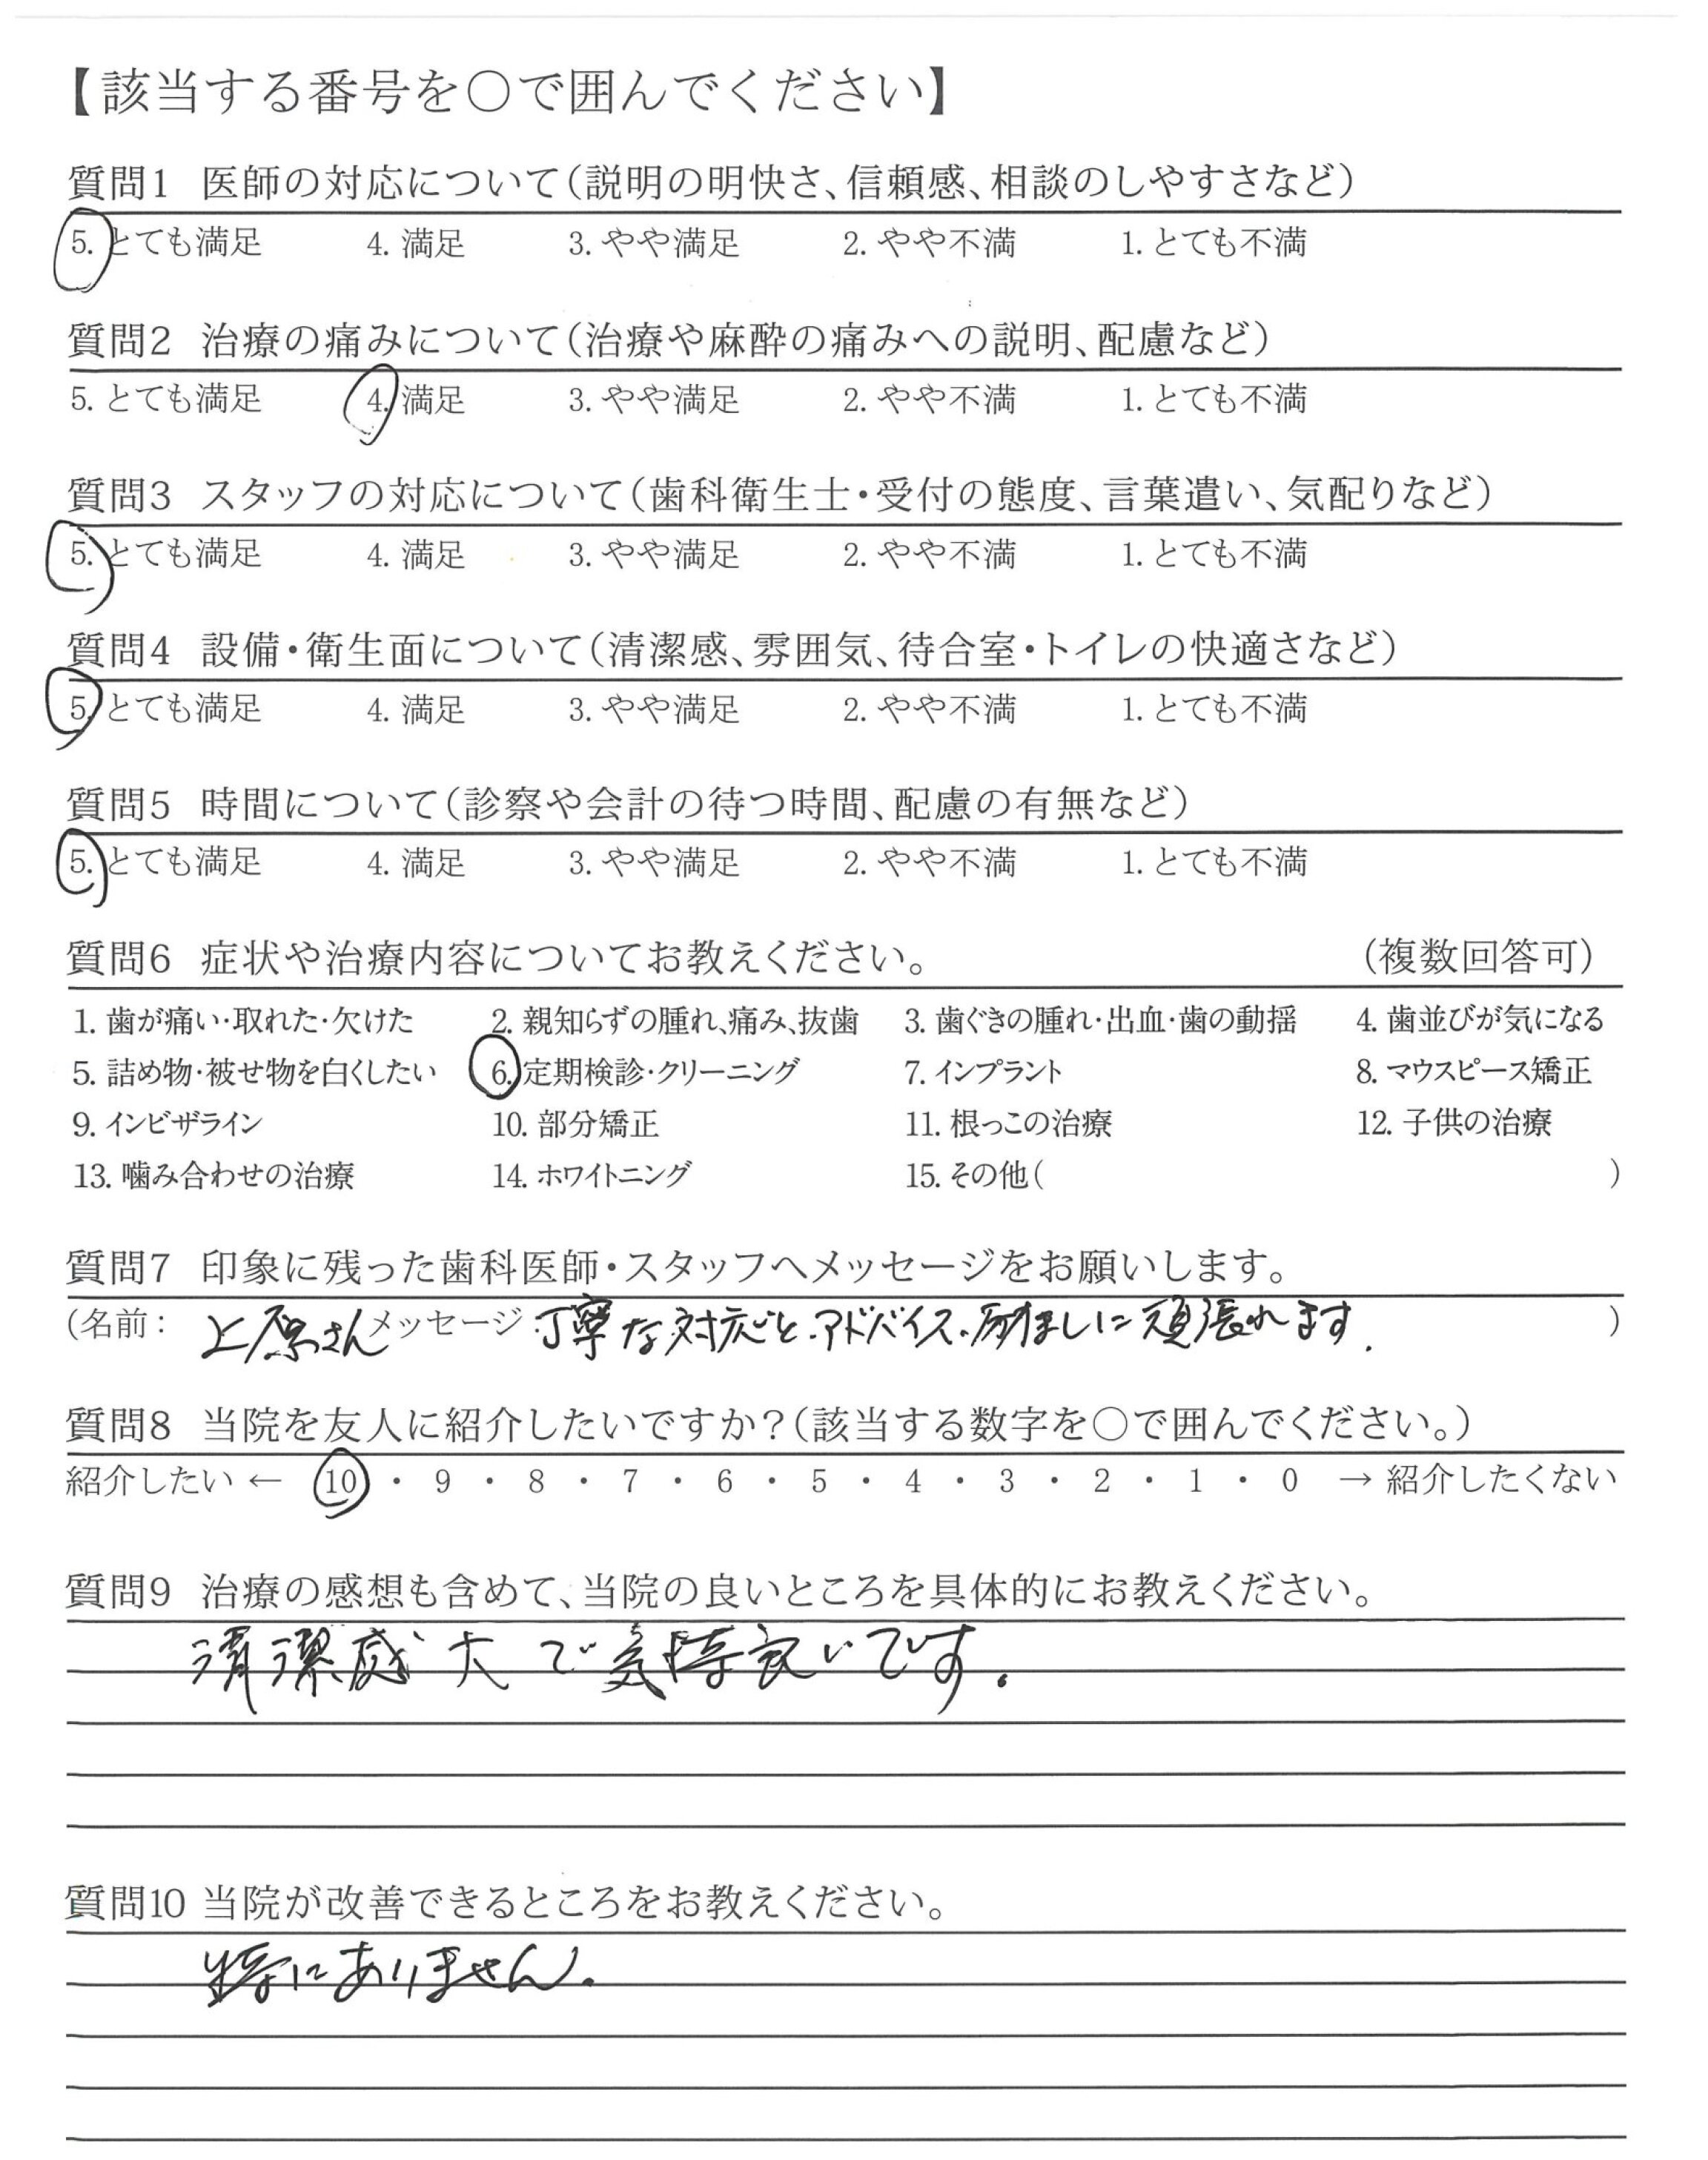 【該当する番号を○で囲んでください】
質問1 医師の対応について(説明の明快さ、信頼感、相談のしやすさなど)
5. とても満足 4. 満足 3. やや満足 2. やや不満 1. とても不満
質問2 治療の痛みについて(治療や麻酔の痛みへの説明、配慮など)
5. とても満足 4. 満足 3. やや満足 2. やや不満 1. とても不満
質問3 スタッフの対応について(歯科衛生士・受付の態度、言葉遣い、気配りなど)
5. とても満足 4. 満足 3. やや満足 2. やや不満 1. とても不満
質問4 設備・衛生面について(清潔感、雰囲気、待合室・トイレの快適さなど)
5. とても満足 4. 満足 3. やや満足 2. やや不満 1. とても不満
質問5 時間について(診察や会計の待つ時間、配慮の有無など)
5. とても満足 4. 満足 3. やや満足 2. やや不満 1. とても不満
質問6 症状や治療内容についてお教えください。 (複数回答可)
1. 歯が痛い・取れた・欠けた 2. 親知らずの腫れ、痛み、抜歯 3. 歯ぐきの腫れ・出血・歯の動揺 4. 歯並びが気になる
5. 詰め物・被せ物を白くしたい 6. 定期検診・クリーニング 7. インプラント 8. マウスピース矯正
9. インビザライン 10. 部分矯正 11. 根っこの治療 12. 子供の治療
13. 噛み合わせの治療 14. ホワイトニング 15. その他( )
質問7 印象に残った歯科医師・スタッフへメッセージをお願いします。
(名前: 上原さん メッセージ 丁寧な対応と.アドバイス.励ましに頑張れます. )
質問8 当院を友人に紹介したいですか?(該当する数字を○で囲んでください。)
紹介したい ← 10 ・ 9 ・ 8 ・ 7 ・ 6 ・ 5 ・ 4 ・ 3 ・ 2 ・ 1 ・ 0 → 紹介したくない
質問9 治療の感想も含めて、当院の良いところを具体的にお教えください。
清潔感大で気持良いです.
質問10 当院が改善できるところをお教えください。
特にありません.